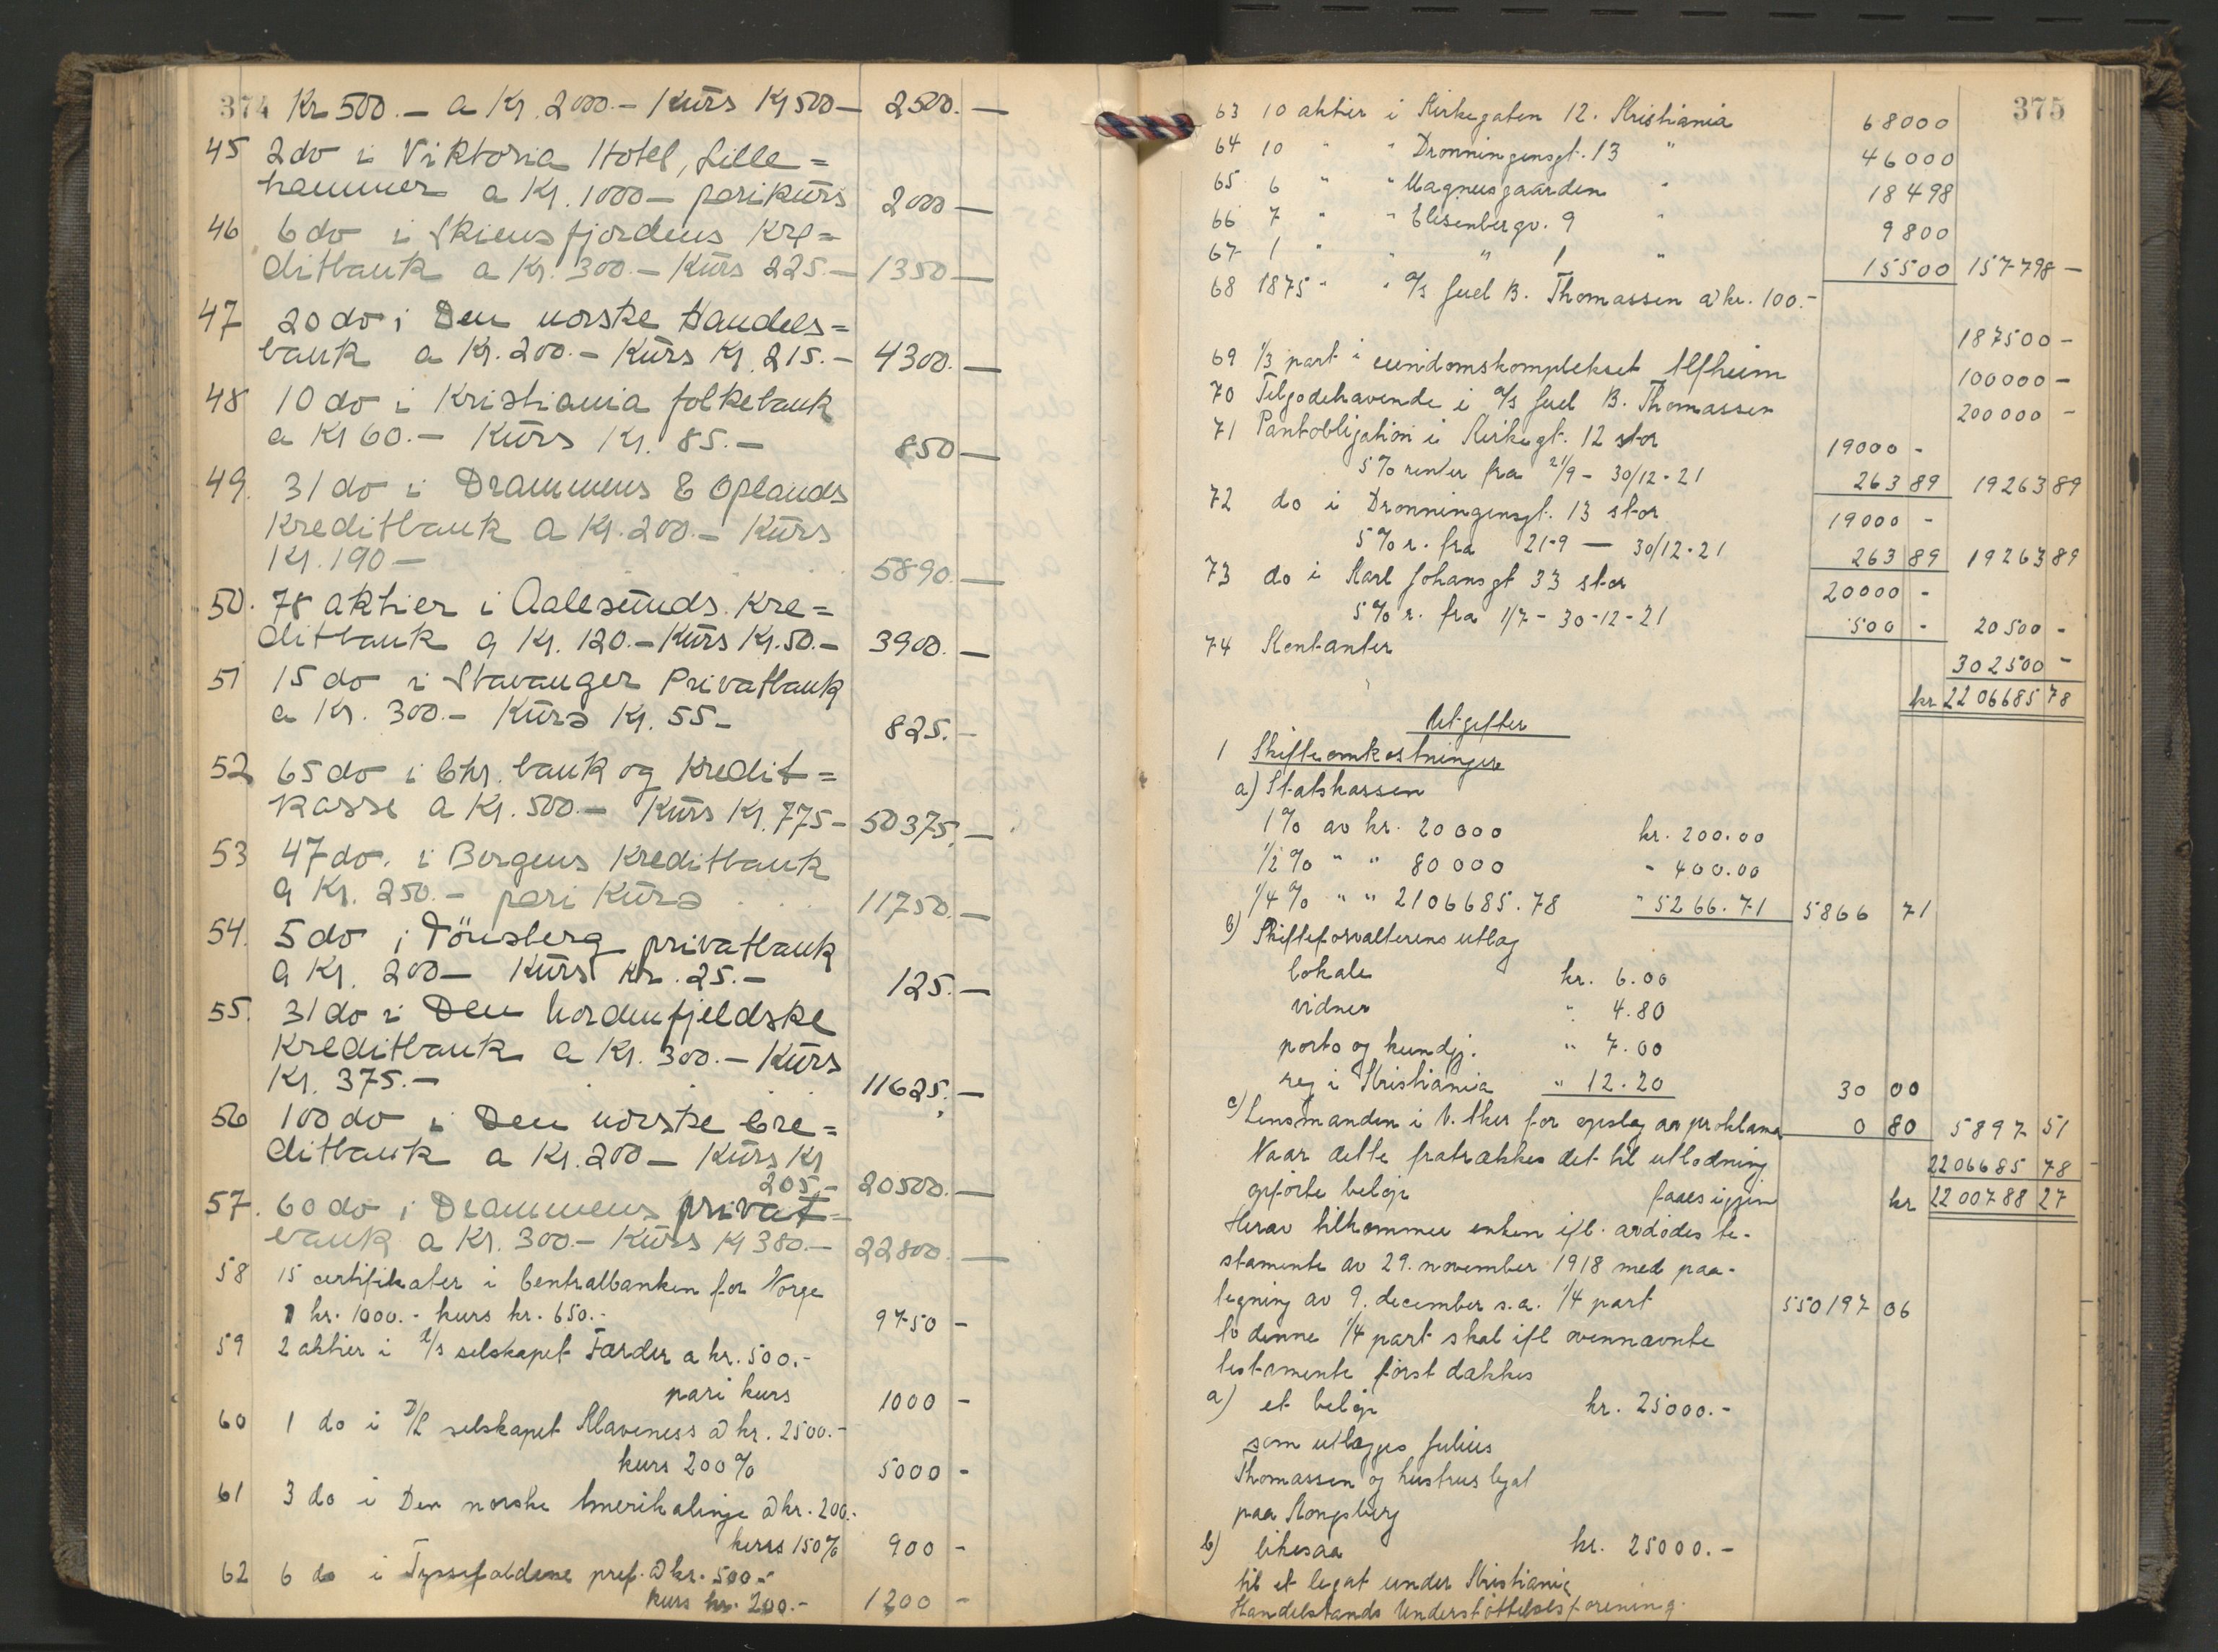 374 Kr 500.- a Kr. 2000.- Kurs Kr 500- 2500.-
45 2 do i Viktoria Hotel, Lille=
hammer a Kr. 1000- parikurs 2000-
46 6 do i Skiensfjordens Kre=
ditbank a Kr. 300.- Kurs 225.- 1350-
47 20 do i Den norske Handels=
bank a Kr. 200.- Kurs Kr. 215.- 4300.-
48 10 do i Kristiania folkebank
a Kr 60.- Kurs Kr. 85.- 850-
49. 31 do i Drammens & Oplands
Kreditbank a Kr. 200.- Kurs
Kr. 190- 5890.-
50. 78 aktier i Aalesunds Kre=
ditbank a Kr. 120.- Kurs Kr. 50.- 3900.-
51 15 do i Stavanger Privatbank
a Kr. 300.- Kurs Kr. 55- 825.-
52 65 do i Chr. bank og Kredit=
kasse a Kr. 500.- Kurs Kr. 775- 50375.-
53 47 do. i Bergens Kreditbank
a Kr. 250.- pari Kurs 11750.-
54. 5 do i Tönsberg privatbank
a Kr. 200- Kurs Kr. 25.- 125.-
55. 31 do i Den Nordenfjeldske
Kreditbank a Kr. 300.- Kurs
Kr. 375.- 11625.-
56 100 do i Den norske Cre=
ditbank a Kr. 200- Kurs Kr
205.- 20500.-
57. 60 do i Drammens privat=
bank a Kr. 300.- Kurs Kr 380.- 22800.-
58 15 certifikater i Centralbanken for Norge
a kr. 1000.- kurs kr. 650.- 9750 -
59 2 aktier i D/S selskapet Færder a kr. 500.-
pari kurs 1000 -
60 1 do i D/S selskapet Klaveness a kr. 2500.-
kurs 200% 5000 -
61 3 do i Den norske Amerikalinje a kr. 200.-
kurs 150% 900 -
62 6 do i Tyssefaldene pref. a kr. 500.-
kurs kr. 200.- 1200 -
375
63 10 aktier i Kirkegaten 12. Kristiania 68000
64 10 " " Dronningensgt. 13 " 46000
65 6 " " Magnusgaarden " 18498
66 7 " " Elisenbergv. 9 " 9800
67 1 " " " 1 " 15500 157798 -
68 1875 " " A/S Juel B. Thomassen a kr. 100.-
187500 -
69 1/3 part i eiendomskomplekset Alfheim 100000 -
70 Tilgodehavende i A/S Juel B. Thomassen 200000 -
71 Pantobligation i Kirkegt. 12 stor 19000 -
5% renter fra 21/9 - 30/12-21 263 89 19263 89
72 do i Dronningensgt. 13 stor 19000 -
5% r. fra 21-9 - 30/12-21 263 89 19263 89
73 do i Karl Johansgt 33 stor 20000 -
5% r. fra 1/7 - 30-12-21 500 - 20500 -
74 Kontanter 302500 -
kr 2206685 78
Utgifter
1 Skifteomkostninger
a) Statskassen
1% av kr. 20000 kr. 200.00
1/2% " " 80000 - 400.00
1/4% " " 2106685.78 " 5266.71 5866 71
b) Skifteforvalterens utlag
lokale kr. 6.00
vidner " 4.80
porto og kundgj. " 7.00
reg i Kristiania " 12.20 30 00
c) Lensmanden i V. Aker for opslag av proklama 0 80 5897 51
Naar dette fratrækkes det til utlodning 2206685 78
opførte beløp faaes igjen kr 2200788 27
Herav tilkommer enken ifl. avdødes te-
stamente av 29. november 1918 med paa-
tegning av 9. december s.a. 1/4 part 550197 06
Av denne 1/4 part skal ifl ovennævnte
testamente først dækkes
a) et beløp kr. 25000.-
som utlægges Julius
Thomassen og hustrus legat
paa Kongsberg
b) likesaa kr. 25000.-
til et legat under Kristiania
Handelstands Understøttelsesforening.